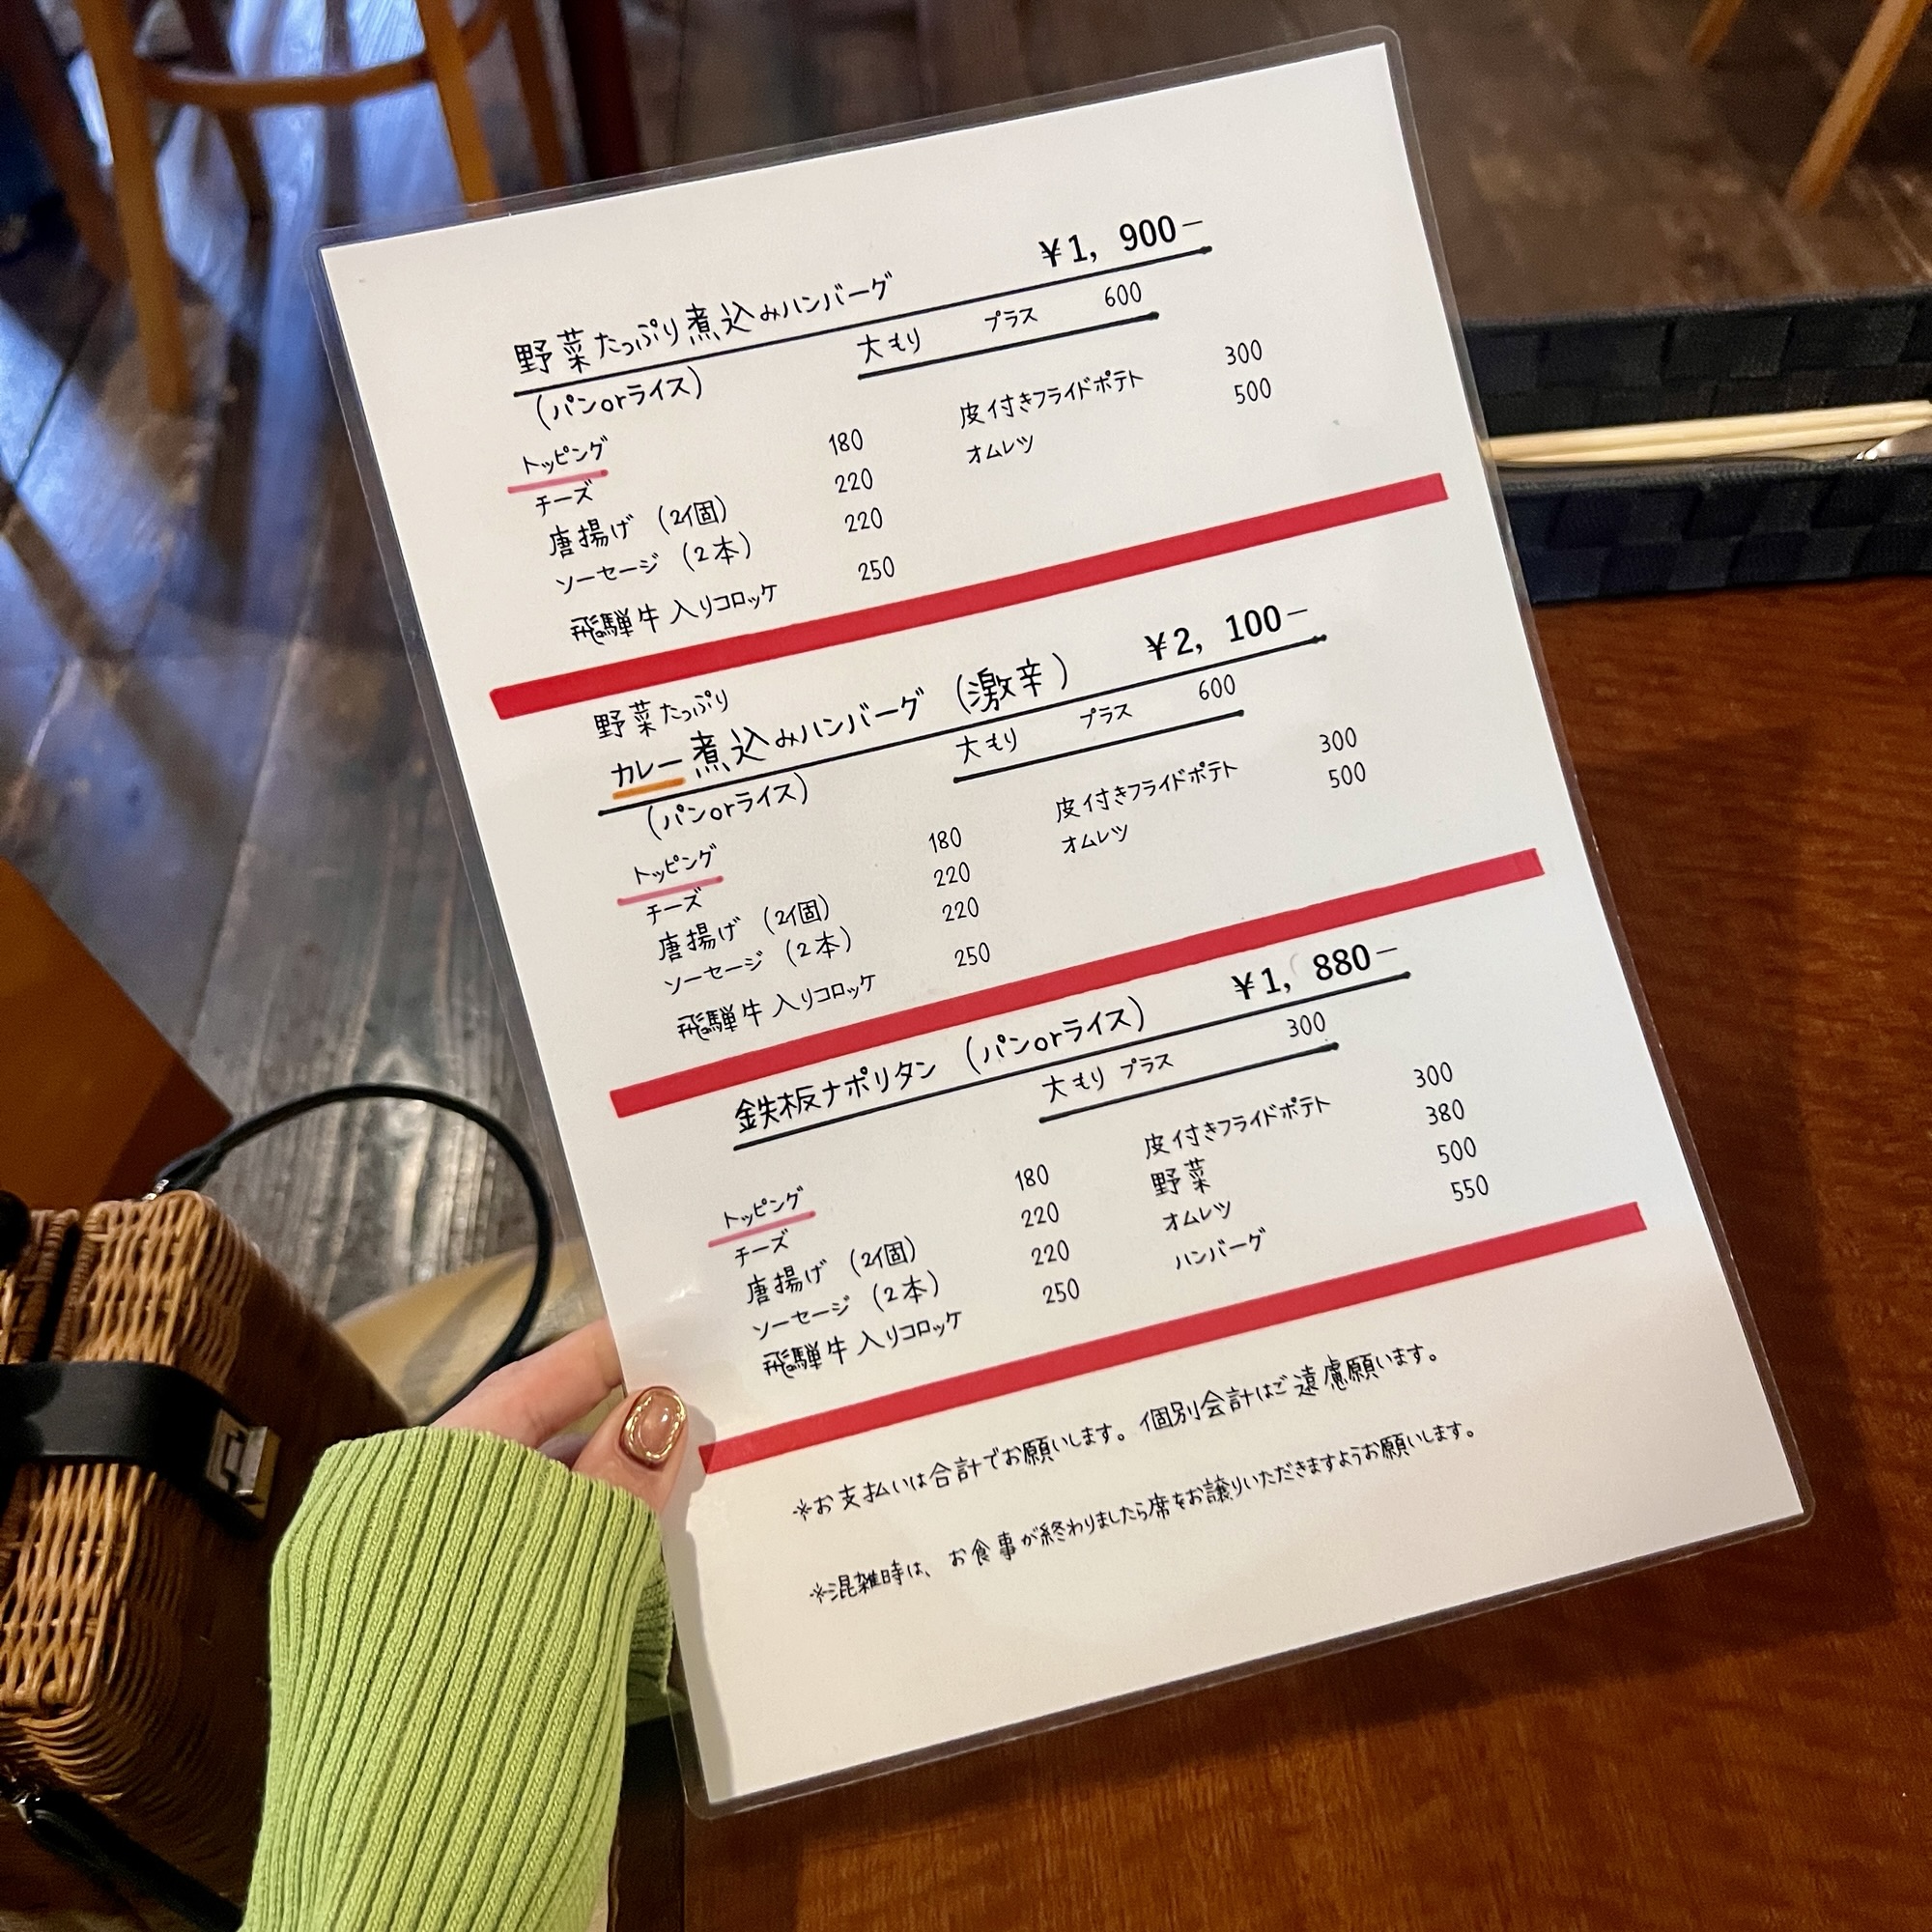 野菜たっぷり煮込みハンバーグ ¥1,900-
(パンorライス) 大もり プラス 600
トッピング
チーズ 180 皮付きフライドポテト 300
唐揚げ (2個) 220 オムレツ 500
ソーセージ (2本) 220
飛騨牛入りコロッケ 250
野菜たっぷり
カレー煮込みハンバーグ (激辛) ¥2,100-
(パンorライス) 大もり プラス 600
トッピング
チーズ 180 皮付きフライドポテト 300
唐揚げ (2個) 220 オムレツ 500
ソーセージ (2本) 220
飛騨牛入りコロッケ 250
鉄板ナポリタン (パンorライス) ¥1,880-
大もり プラス 300
トッピング
チーズ 180 皮付きフライドポテト 300
唐揚げ (2個) 220 野菜 380
ソーセージ (2本) 220 オムレツ 500
飛騨牛入りコロッケ 250 ハンバーグ 550
※お支払いは合計でお願いします。個別会計はご遠慮願います。
※混雑時は、お食事が終わりましたら席をお譲りいただきますようお願いします。